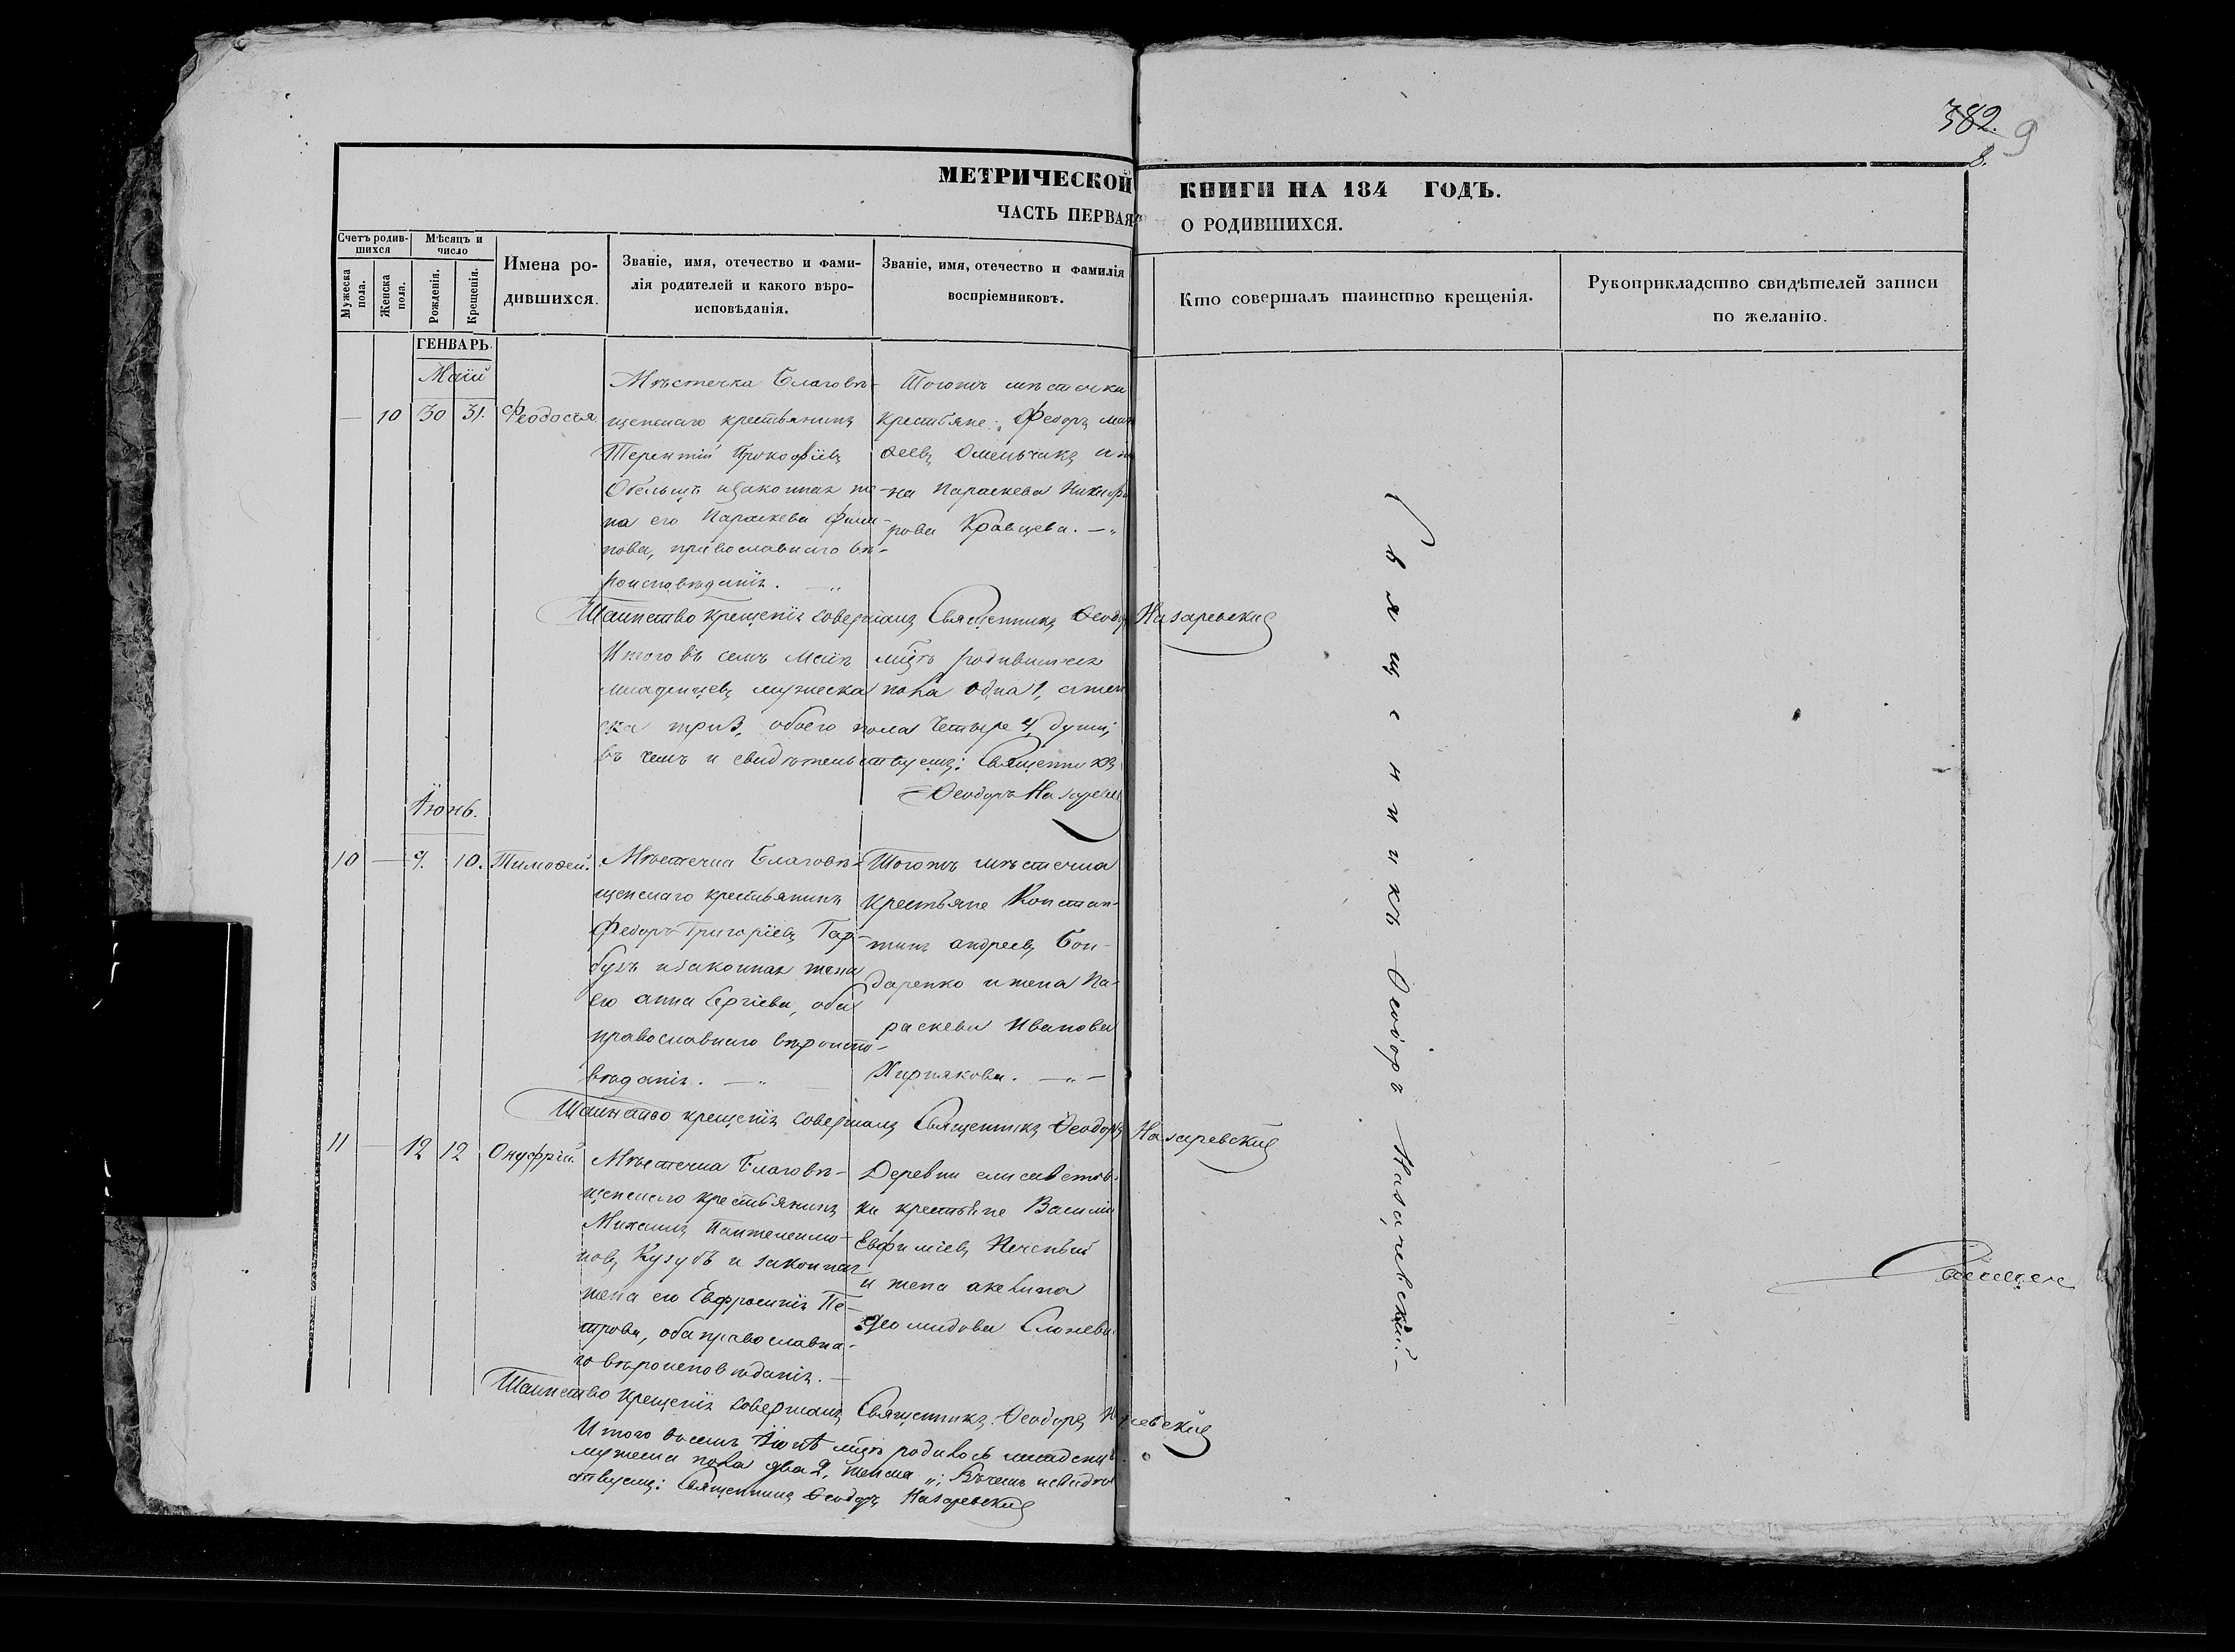 382. 9
8.
МЕТРИЧЕСКОЙ КНИГИ НА 184 ГОДЪ.
ЧАСТЬ ПЕРВАЯ О РОДИВШИХСЯ.
Счетъ родив-
шихся
Мѣсяцъ и
число
Мужеска
пола.
Женска
пола.
Рожденія.
Крещенія.
Имена ро-
дившихся.
Званіе, имя, отечество и фами-
лія родителей и какого вѣро-
исповѣданія.
Званіе, имя, отечество и фамилія
воспріемниковъ.
Кто совершалъ таинство крещенія.
Рукоприкладство свидѣтелей записи
по желанію.
ГЕНВАРЬ.
Маій
— 10 30 31. Феодосія.
Мѣстечка Благовѣ-
щенскаго крестьянинъ
Терентій Прокофіевъ
и законная же-
на его Параскева
пова, православнаго вѣ-
роисповѣданія. —
Тогожъ мѣстечка
крестьяне: Федоръ
ѳеевъ Омельчикъ и
на Параскева Никифо
рова Кравцева. —
Таинство крещенія совершалъ Священникъ Ѳеодоръ Назаревскій
Итого въ семъ Маіѣ мцѣ родившихся
младенцевъ мужеска пола одна 1, а жен
ска три 3, обоего пола четыре 4 души,
въ чемъ и свидѣтельствуемъ: Священникъ
Ѳеодоръ Назаревскій
Іюнь.
10 — 9. 10. Тимоѳей.
Мѣстечка Благовѣ-
щенскаго крестьянинъ
Федоръ Григоріевъ Гар-
бузъ и законная жена
его Анна Сергіева, оба
православнаго вѣроиспо-
вѣданія. —
Тогожъ мѣстечка
крестьяне Констан-
тинъ Андреевъ Бон-
даренко и жена Па-
раскева Иванова
Таинство крещенія совершалъ Священникъ Ѳеодоръ Назаревскій
11 — 12 12 Онуфрій.
Мѣстечка Благовѣ-
щенскаго крестьянинъ
Михаилъ Пантелеимо-
новъ Кузубъ и законная
жена его Евфросинія Пе-
трова, оба православна-
го вѣроисповѣданія. —
Деревни Елисаветов-
ки крестьяне Василій
Евфиміевъ
и жена Акелина
Діомидова
Таинство крещенія совершалъ Священникъ Ѳеодоръ Назаревскій
Итого въ семъ Іюнѣ мцѣ родилось младенц
мужеска пола два 2, женска „; въ чемъ и свидѣтель
ствуемъ: Священникъ Ѳеодоръ Назаревскій
Священникъ Ѳеодоръ Назаревскій. —